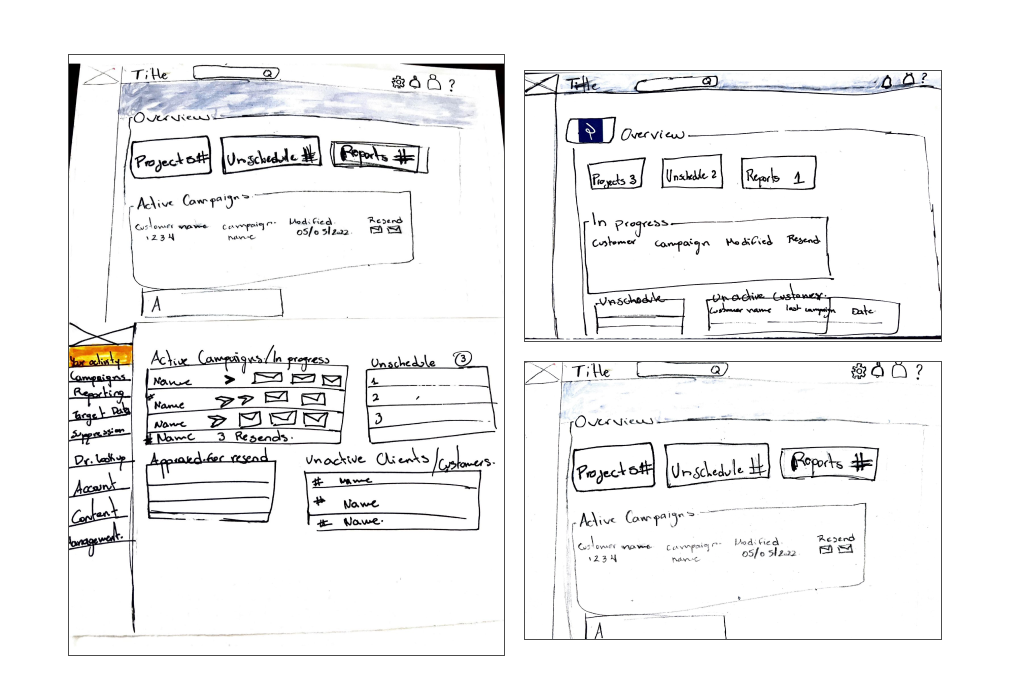 Title
Overview
Projects # Unschedule # Reports #
Active Campaigns
Customer name campaign name Modified Resend
1234 05/05/2022
A
Your activity
Campaigns
Reporting
Target Data
Suppression
Dr. Lookup
Account
Content
Management.
Active Campaigns/In progress
Name
# Name
Name
# Name 3 Resends.
Unschedule 3
1
2
3
Approved for resend
Unactive Clients/Customers.
# Name
# Name
# Name.
Title ?
Overview
Projects 3 Unschedule 2 Reports 1
In progress
Customer campaign Modified Resend
Unschedule
Unactive Customer.
Customer name last campaign Date
Title ?
Overview
Projects # Unschedule # Reports #
Active Campaigns
Customer name campaign name Modified Resend
1234 05/05/2022
A